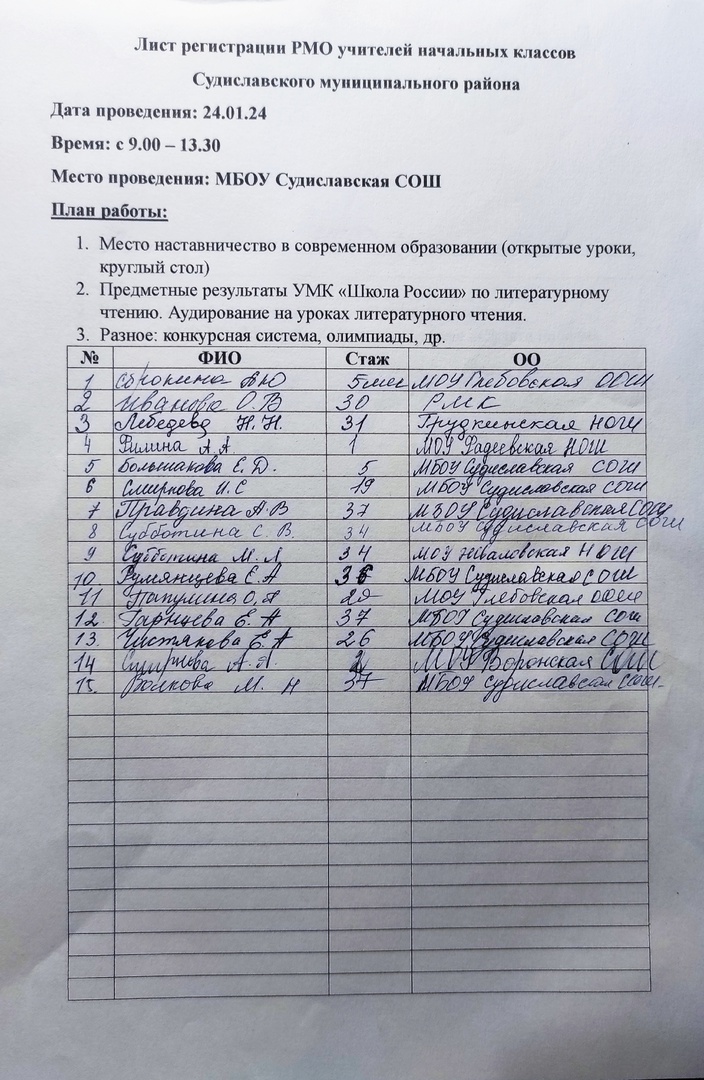 Лист регистрации РМО учителей начальных классов
Судиславского муниципального района
Дата проведения: 24.01.24
Время: с 9.00 – 13.30
Место проведения: МБОУ Судиславская СОШ
План работы:
1. Место наставничество в современном образовании (открытые уроки,
круглый стол)
2. Предметные результаты УМК «Школа России» по литературному
чтению. Аудирование на уроках литературного чтения.
3. Разное: конкурсная система, олимпиады, др.
№ ФИО Стаж ОО
1 Сорокина А Ю 5 мес МОУ Глебовская ООШ
2 Иванова О. В 30 РМК
3 Лебедева Н. Н. 31 Грудкинская НОШ
4 А. А. 1 МОУ Фадеевская НОШ
5 Большакова Е. Д. 5 МБОУ Судиславская СОШ
6 Смирнова И. С 19 МБОУ Судиславская СОШ
7 Правдина А. В 37 МБОУ Судиславская СОШ
8 Субботина С. В. 34 МБОУ Судиславская СОШ
9 Субботина М. Л 34 МОУ НОШ
10. Румянцева Е. А 36 МБОУ Судиславская СОШ
11 Папулина О. А МОУ Глебовская ООШ
12. Е. А 37 МБОУ Судиславская СОШ
13. Чистякова Е. А 26 МБОУ Судиславская СОШ
14 Смирнова А. А. МОУ Воронская СОШ
15. Волкова М. Н 37 МБОУ Судиславская СОШ